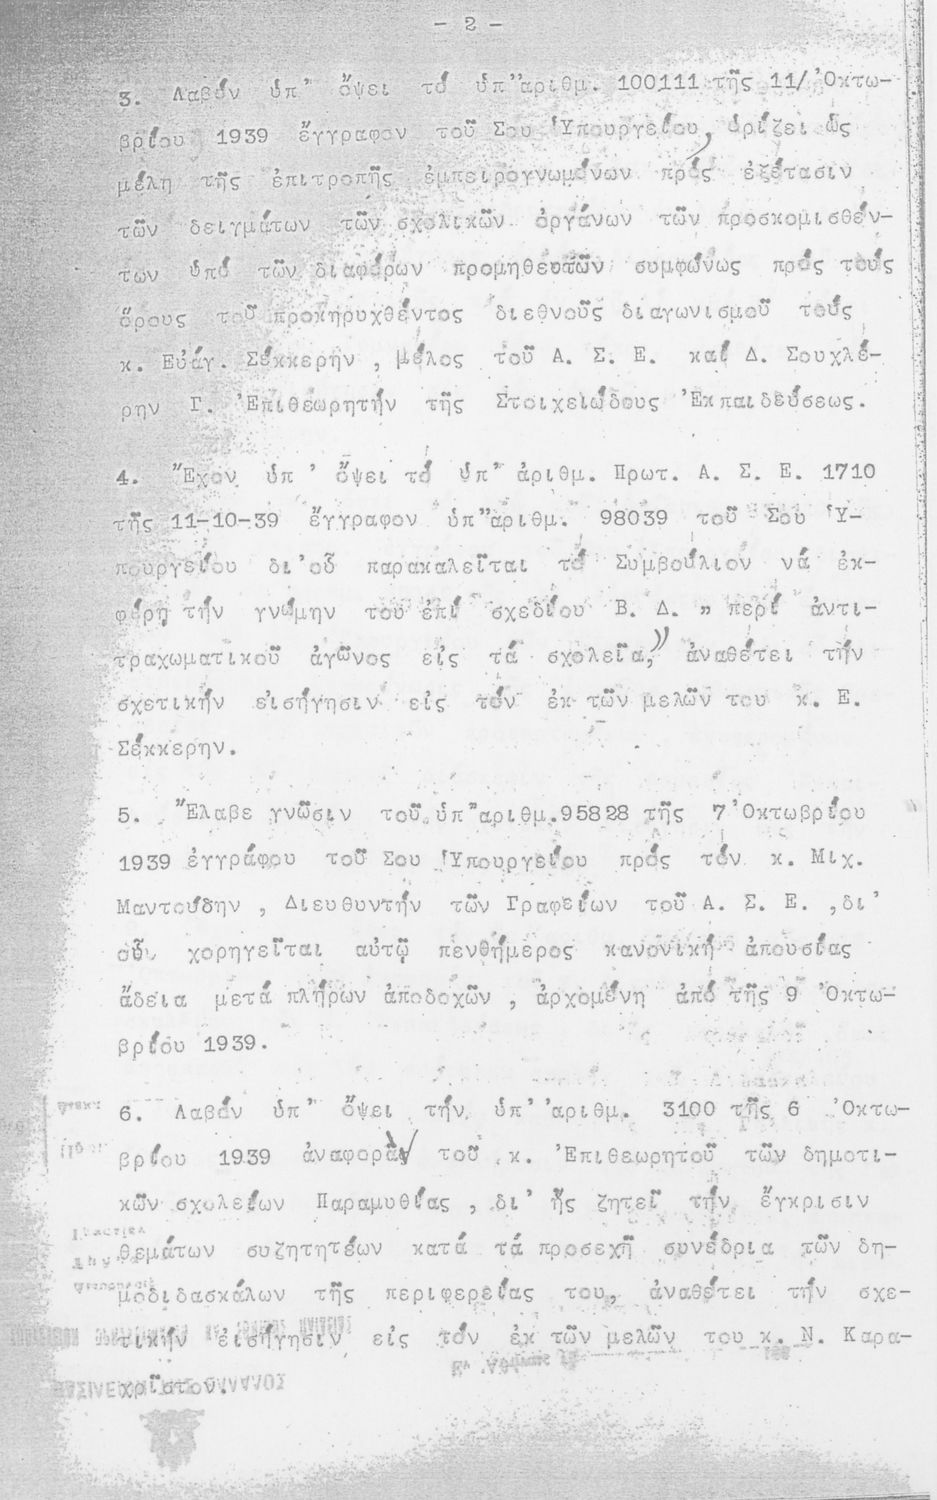 - 2 -
3. Λαβόν ὑπ' ὄψει τό ὑπ"ἀριθμ. 100111 τῆς 11/'Οκτω-
βρίου 1939 ἔγγραφον τοῦ Σου Ὑπουργείου, ὁρίζει ὡς
μέλη τῆς ἐπιτροπῆς ἐμπειρογνωμόνων πρός ἐξέτασιν
τῶν δειγμάτων τῶν σχολικῶν ὀργάνων τῶν προσκομισθέν-
των ὑπό τῶν διαφόρων προμηθευτῶν συμφώνως πρός τούς
ὅρους τοῦ προκηρυχθέντος διεθνοῦς διαγωνισμοῦ τούς
κ. Εὐάγ. Σέκκερην , μέλος τοῦ Α. Σ. Ε. καί Δ. Σουχλέ-
ρην Γ. Ἐπιθεωρητήν τῆς Στοιχειώδους Ἐκπαιδεύσεως.
4. Ἔχον ὑπ ' ὄψει τό ὑπ" ἀριθμ. Πρωτ. Α. Σ. Ε. 1710
τῆς 11-10-39 ἔγγραφον ὑπ"αριθμ. 98039 τοῦ Σου Ὑ-
πουργείου δι'οὗ παρακαλεῖται τό Συμβούλιον νά ἐκ-
φέρῃ τήν γνώμην του ἐπί σχεδίου Β. Δ. " περί ἀντι-
τραχωματικοῦ ἀγῶνος εἰς τά σχολεῖα," ἀναθέτει τήν
σχετικήν εἰσήγησιν εἰς τόν ἐκ τῶν μελῶν του κ. Ε.
Σέκκερην.
5. Ἔλαβε γνῶσιν τοῦ ὑπ"αριθμ.95828 τῆς 7 Ὀκτωβρίου
1939 ἐγγράφου τοῦ Σου Ὑπουργείου πρός τόν κ. Μιχ.
Μαντούδην , Διευθυντήν τῶν Γραφείων τοῦ Α. Σ. Ε. ,δι'
οὗ χορηγεῖται αὐτῷ πενθήμερος κανονική ἀπουσίας
ἄδεια μετά πλήρων ἀποδοχῶν , ἀρχομένη ἀπό τῆς 9 Ὀκτω-
βρίου 1939.
6. Λαβόν ὑπ' ὄψει τήν ὑπ' 'αριθμ. 3100 τῆς 6 Ὀκτω-
βρίου 1939 ἀναφοράν τοῦ κ. Ἐπιθεωρητοῦ τῶν δημοτι-
κῶν σχολείων Παραμυθίας , δι' ἧς ζητεῖ τήν ἔγκρισιν
θεμάτων συζητητέων κατά τά προσεχῆ συνέδρια τῶν δη-
μοδιδασκάλων τῆς περιφερείας του, ἀναθέτει τήν σχε-
τικήν εἰσήγησιν εἰς τόν ἐκ τῶν μελῶν του κ. Ν. Καρα-
χρῖστον.